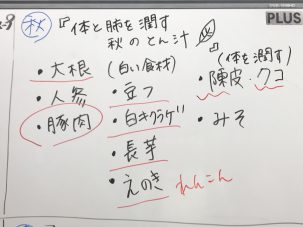 秋 『体と肺を潤す
秋のとん汁』
PLUS
(白い食材)
(体を潤す)
・大根
・人参
・豚肉
・豆フ
・白キクラゲ
・長芋
・えのき れんこん
・陳皮・クコ
・みそ